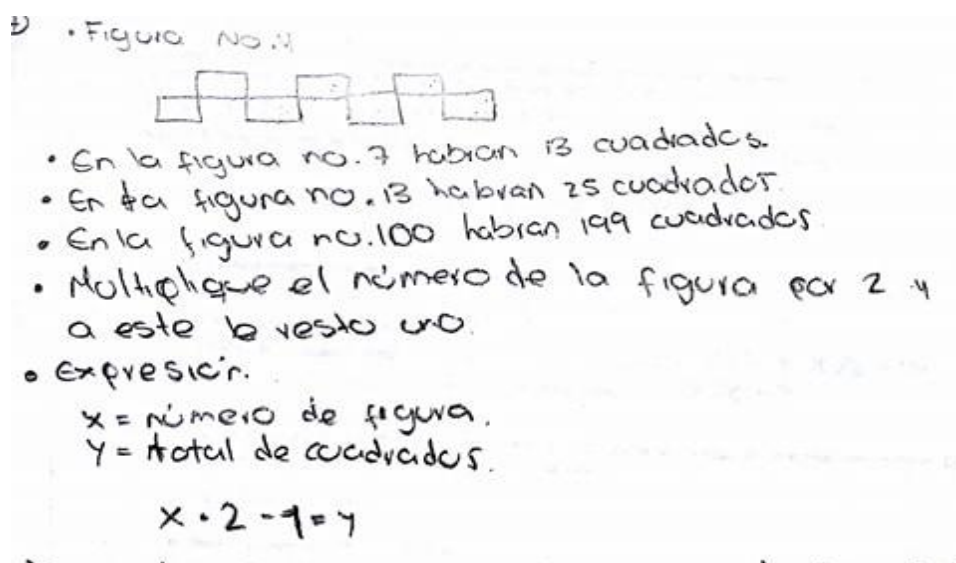 • Figura No.4
• En la figura no.7 habran 13 cuadrados.
• En la figura no.13 habran 25 cuadrados.
• En la figura no.100 habran 199 cuadrados
• Multiplique el número de la figura por 2 y
a este le resto uno.
• Expresión.
x = número de figura.
y = total de cuadrados.
x • 2 - 1 = y